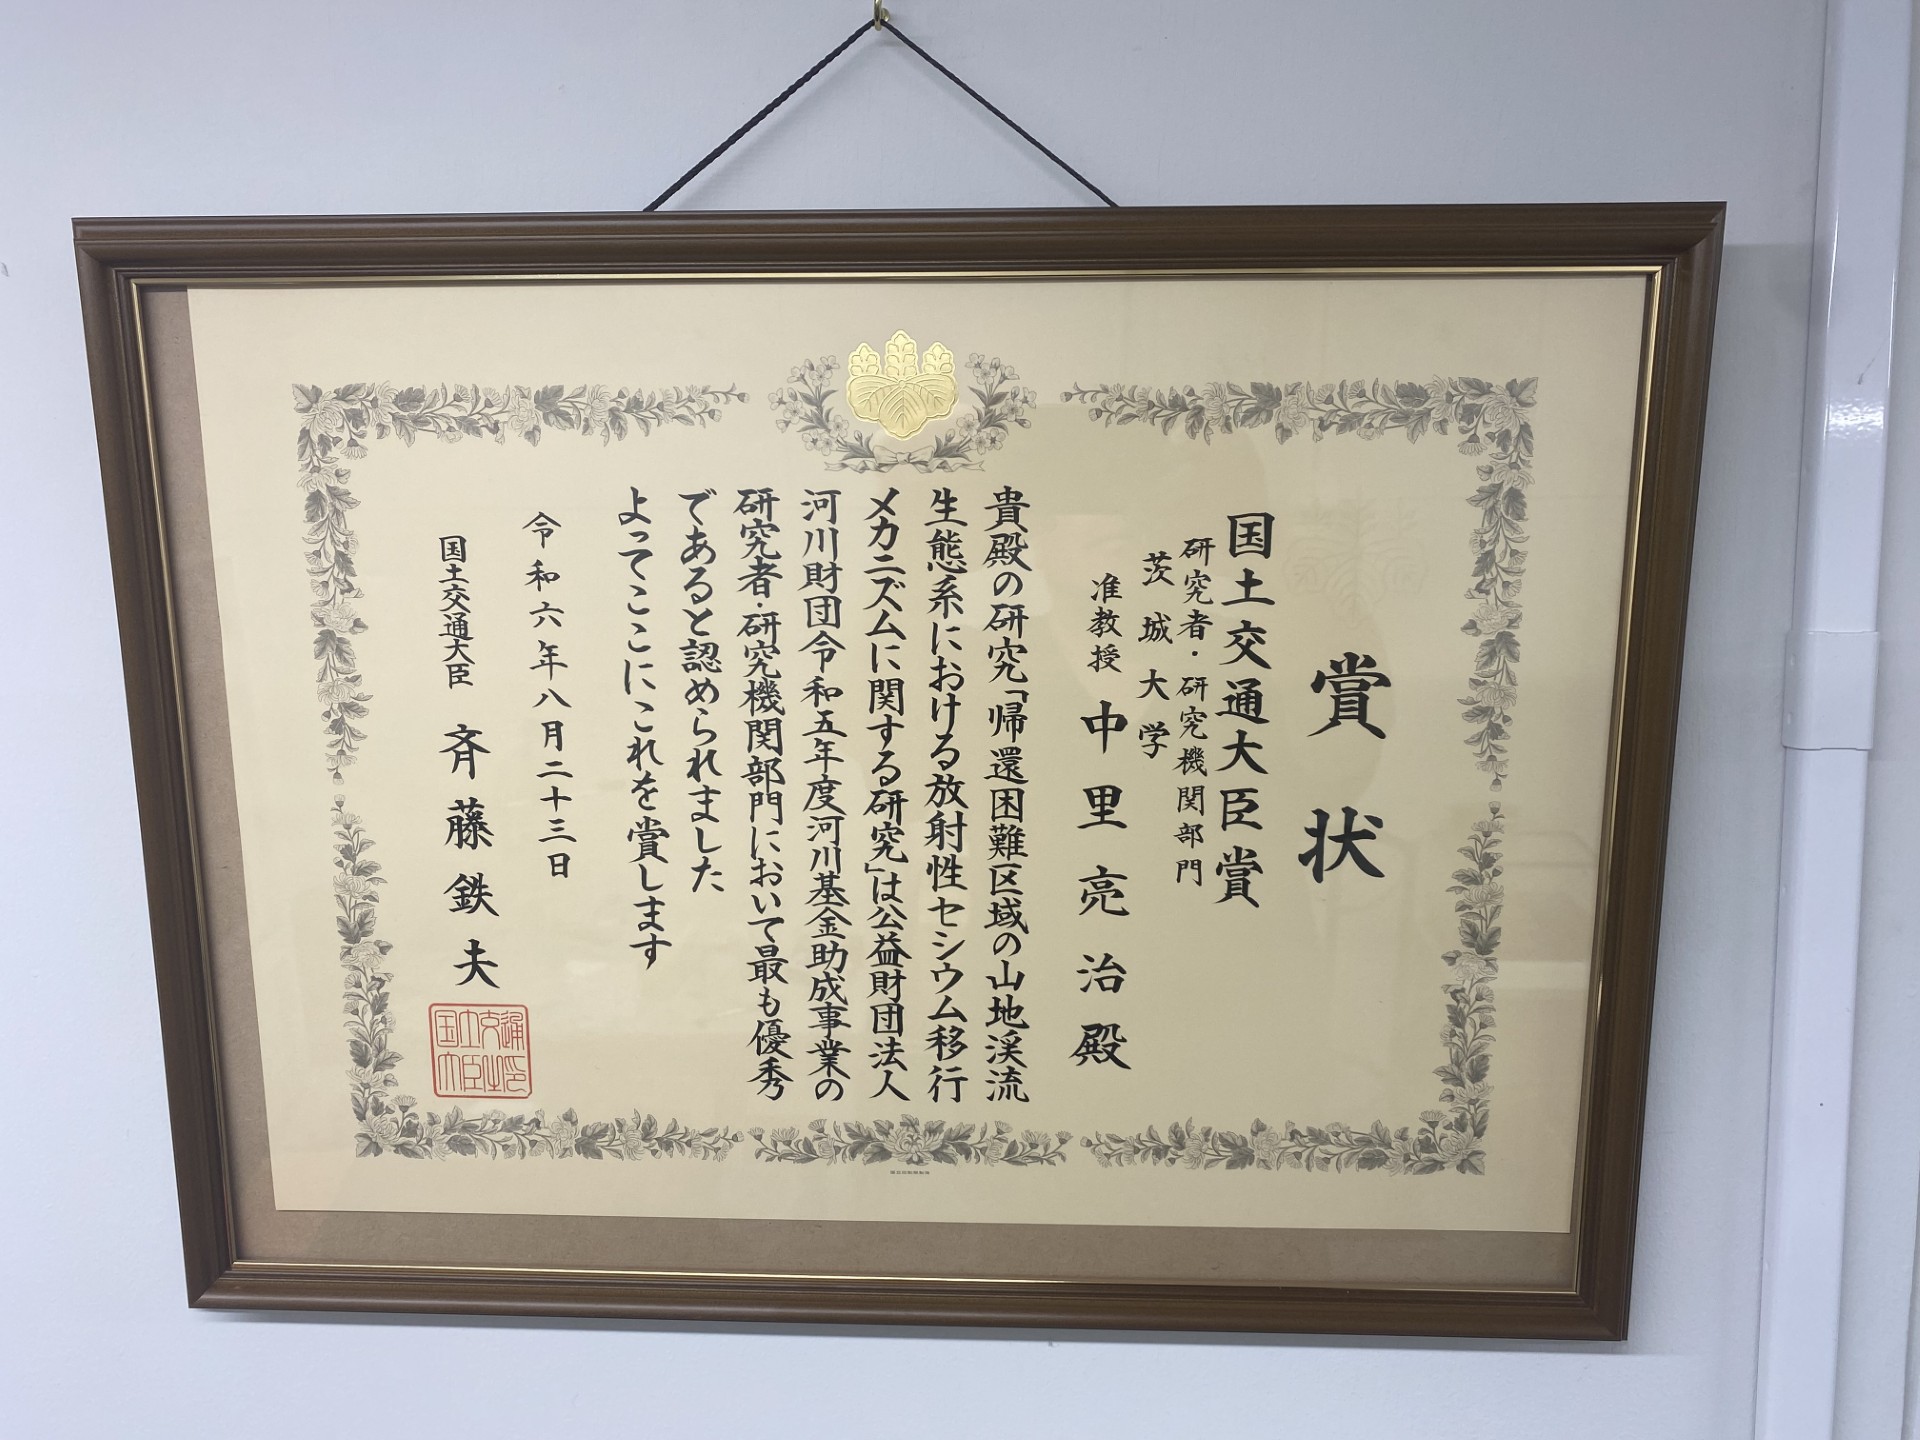 賞状
国土交通大臣賞
研究者・研究機関部門
茨城大学
准教授 中里亮治殿
貴殿の研究「帰還困難区域の山地渓流
生態系における放射性セシウム移行
メカニズムに関する研究」は公益財団法人
河川財団令和五年度河川基金助成事業の
研究者・研究機関部門において最も優秀
であると認められました
よってここにこれを賞します
令和六年八月二十三日
国土交通大臣 斉藤鉄夫